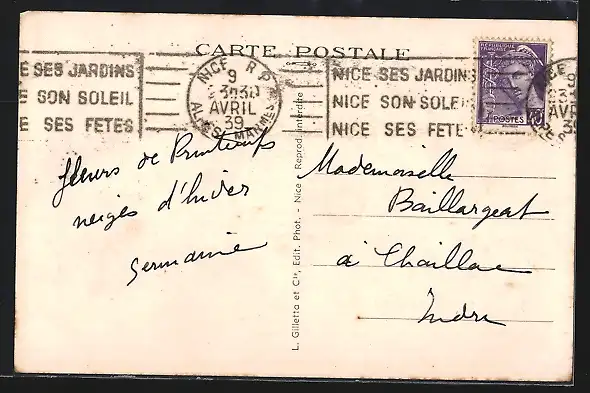 CARTE POSTALE
E SES JARDINS
E SON SOLEIL
E SES FETES
NICE R.P.
9
AVRIL
39
NICE SES JARDINS
NICE SON SOLEIL
NICE SES FETE
REPUBLIQUE FRANCAISE
POSTES
fleurs de Printemps
neiges d'hiver
Germaine
L. Gilletta et Cie, Edit. Phot. - Nice - Reprod. interdite
Mademoiselle
Baillargeat
à Chaillac
Indre